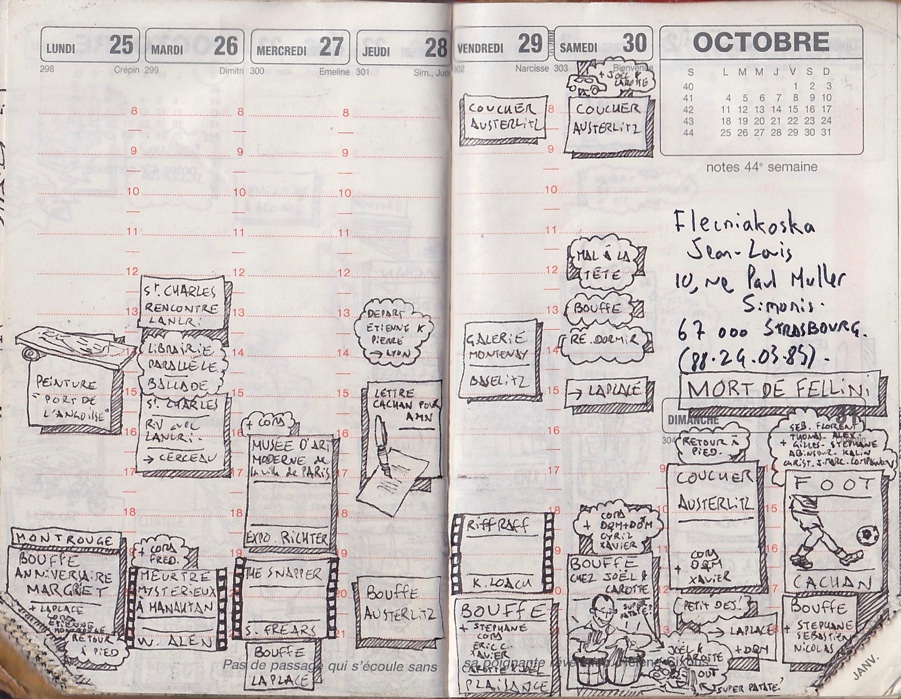 LUNDI 25
298 Crépin
8
9
10
11
12
13
14
15
16
17
18
19
20
21
PEINTURE
"PORT DE
L'ANGOISSE"
MONTROUGE
BOUFFE
ANNIVERSAIRE
MARGRET
+ LAPLACE
RETOUR
À PIED
MARDI 26
299 Dimitri
ST. CHARLES
RENCONTRE
LANLRI.
LIBRAIRIE
PARALLÈLE
BALLADE
ST. CHARLES
RDV AVEC
LANLRI.
→ CERCEAU
+ CORA
FRED.
MEURTRE
MYSTERIEUX
À MANATTAN
W. ALEN
MERCREDI 27
300 Emeline
+ CORA
MUSÉE D'ART
MODERNE de
la ville de PARIS
EXPO. RICHTER
THE SNAPPER
S. FREARS
BOUFFE
LAPLACE
JEUDI 28
301 Sim., Jude
DEPART
ETIENNE K
PIERRE
→ LYON
LETTRE
CACHAN POUR
AMN
BOUFFE
AUSTERLITZ
VENDREDI 29
302 Narcisse
COUCHER
AUSTERLITZ
GALERIE
MONTENAY
BASELITZ
RIFFRAFF
K. LOACH
BOUFFE
+ STEPHANE
CORA
ERIC C
XAVIER
PLAISANCE
SAMEDI 30
303 Bienvenue
+ JOËL &
CAROTTE
COUCHER
AUSTERLITZ
MAL À LA
TÊTE
BOUFFE
RE. DORMIR
→ LAPLACE
+ CORA
+ DOM+DOM
CYRIL
XAVIER
BOUFFE
CHEZ JOËL &
CAROTTE
SUPER
PATATE!
OCTOBRE
S L M M J V S D
40 1 2 3
41 4 5 6 7 8 9 10
42 11 12 13 14 15 16 17
43 18 19 20 21 22 23 24
44 25 26 27 28 29 30 31
notes 44e semaine
Flecniakoska
Jean-Louis
10, rue Paul Muller
Simonis.
67 000 STRASBOURG.
(88.29.03.85).
MORT DE FELLINI
DIMANCHE
304
RETOUR À
PIED.
COUCHER
AUSTERLITZ
CORA
+ DOM
XAVIER
PETIT DEJ.
→ LAPLACE
+ DOM
JOËL &
CAROTTE
OUT
"SUPER PATATE"
SEB. FLORENT
THOMAS. ALEX.
+ GILLES. STEPHANE
FOOT
CACHAN
BOUFFE
+ STEPHANE
SEBASTIEN
NICOLAS
Pas de passage qui s'écoule sans sa poignante rêverie.
JANV.